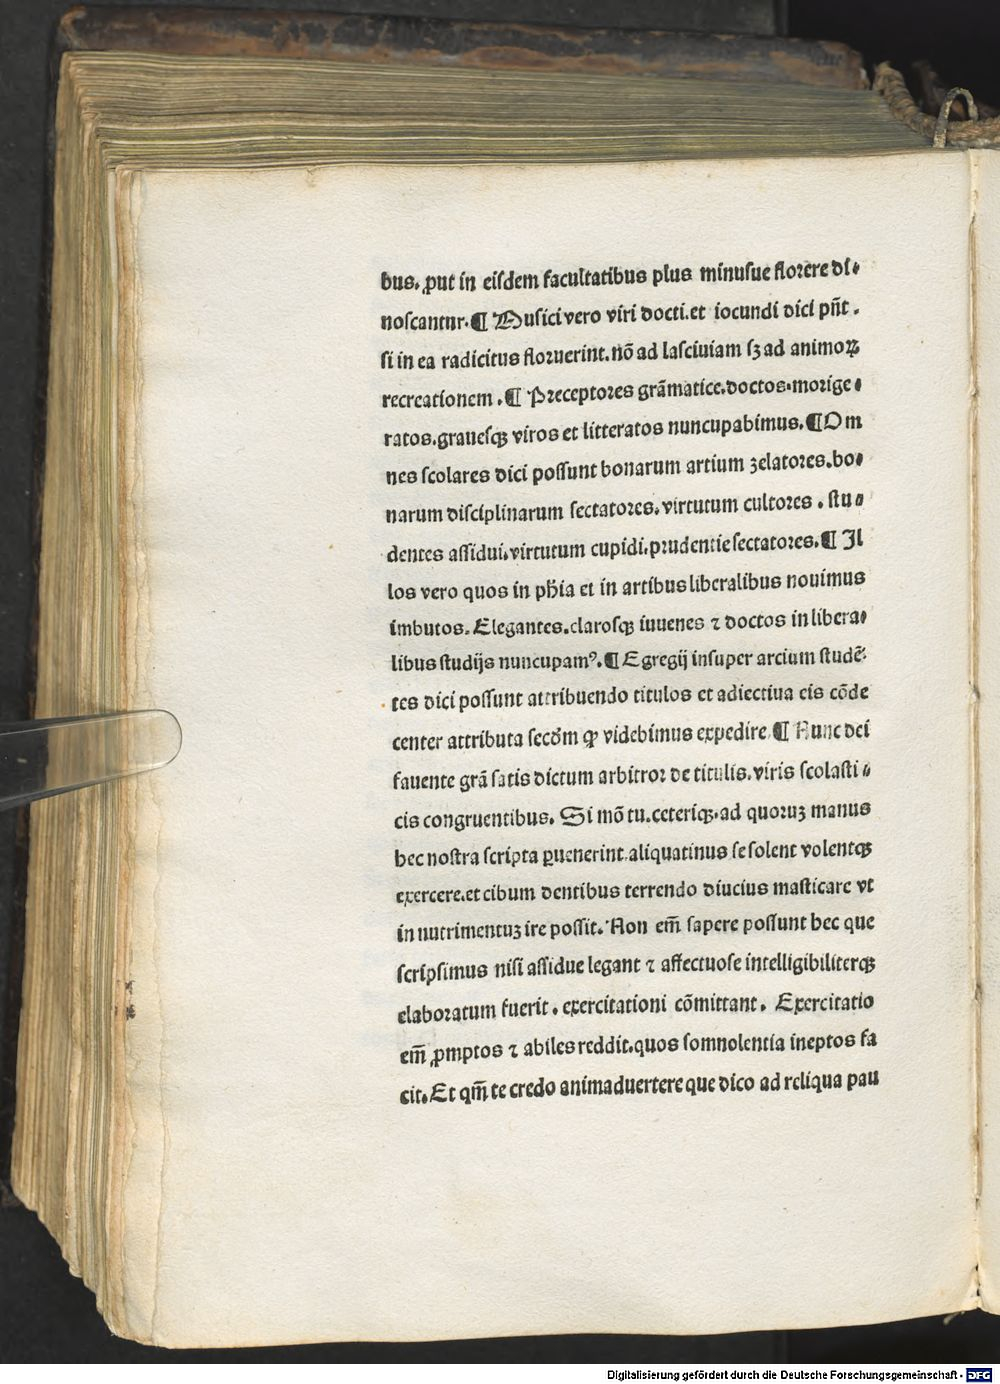 bus. ꝓut in eiſdem facultatibus plus minuſue florere di⸗
noſcantur. ¶ Muſici vero viri docti. et iocundi dici pn̄t.
ſi in ea radicitus floruerint. nō ad laſciuiam ſꝫ ad animoꝝ
recreationem. ¶ Preceptores grāmatice. doctos. morige⸗
ratos. graueſqꝫ viros et litteratos nuncupabimus. ¶ Om
nes ſcolares dici poſſunt bonarum artium zelatores. bo⸗
narum diſciplinarum ſectatores. virtutum cultores. ſtu⸗
dentes aſſidui. virtutum cupidi. prudentie ſectatores. ¶ Il
los vero quos in ph̄ia et in artibus liberalibus nouimus
imbutos. Elegantes. claroſqꝫ iuuenes ⁊ doctos in libera⸗
libus ſtudijs nuncupamꝰ. ¶ Egregij inſuper arcium ſtudē⸗
tes dici poſſunt attribuendo titulos et adiectiua eis cōde
center attributa ſecōm ꝙ videbimus expedire ¶ Nunc dei
fauente grā ſatis dictum arbitror de titulis. viris ſcolaſti⸗
cis congruentibus. Si mō tu. ceteriqꝫ. ad quoruꝫ manus
hec noſtra ſcripta ꝑuenerint. aliquatinus ſe ſolent volentqꝫ
exercere. et cibum dentibus terrendo diucius maſticare vt
in nutrimentuꝫ ire poſſit. Non em̄ ſapere poſſunt hec que
ſcripſimus niſi aſſidue legant ⁊ affectuoſe intelligibiliterqꝫ
elaboratum fuerit. exercitationi cōmittant. Exercitatio
em̄ ꝓmptos ⁊ abiles reddit. quos ſomnolentia ineptos fa
cit. Et qm̄ te credo animaduertere que dico ad reliqua pau
Digitalisierung gefördert durch die Deutsche Forschungsgemeinschaft - DFG